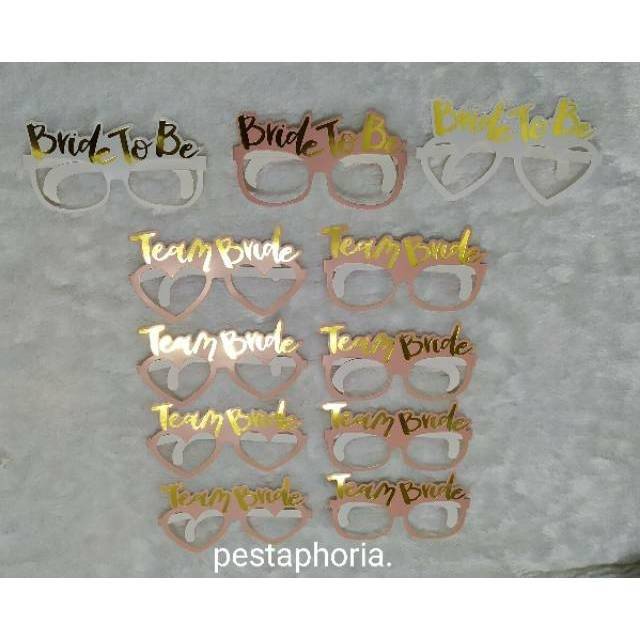 Bride To Be
Bride To Be
Bride To Be
Team Bride
Team Bride
Team Bride
Team Bride
Team Bride
Team Bride
Team Bride
Team Bride
pestaphoria.